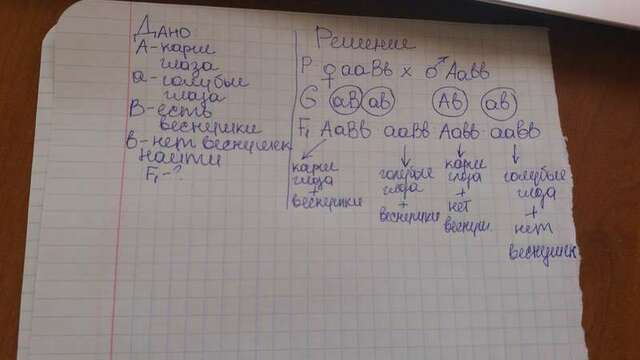 Дано
А-карие
глаза
а-голубые
глаза
В-есть
веснушки
в-нет веснушек
найти
F₁-?
Решение
P ♀ааВв х ♂Аавв
G аВ ав Ав ав
F₁ АаВв ааВв Аавв аавв
карие
глаза
+
веснушки
голубые
глаза
+
веснушки
карие
глаза
+
нет
веснуш.
голубые
глаза
+
нет
веснушек